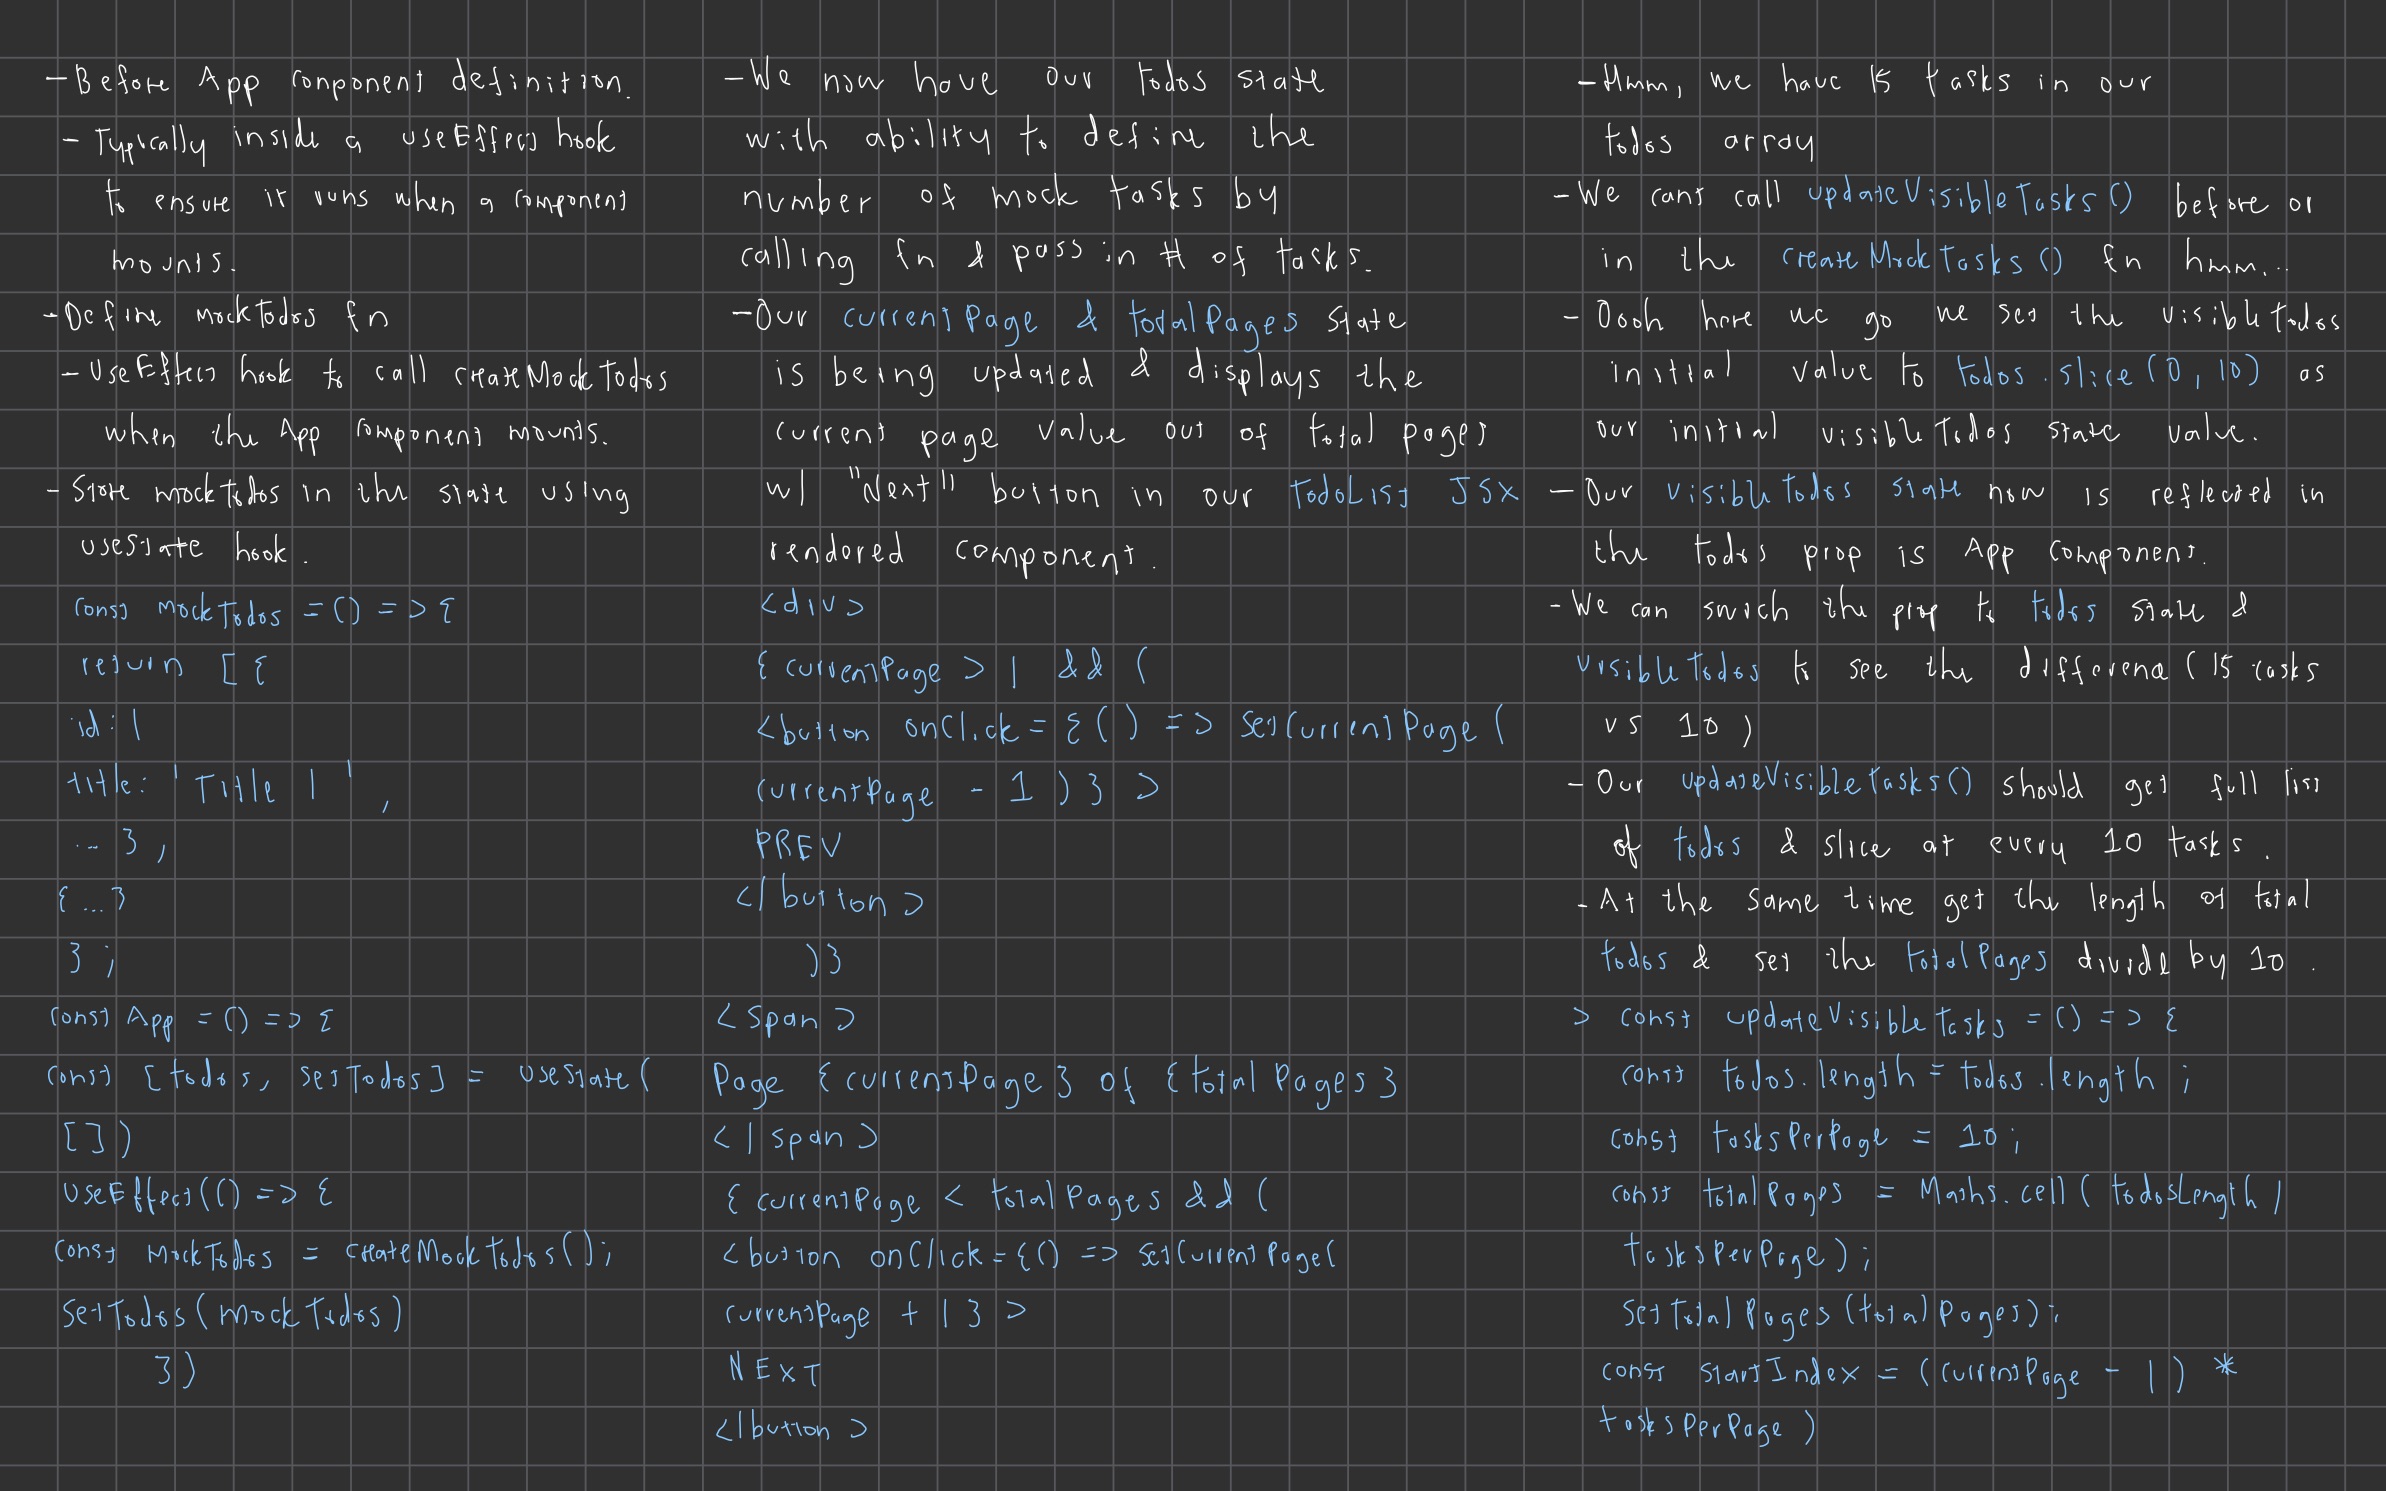 - Before App component definition.
- Typically inside a useEffect hook
to ensure it runs when a component
mounts.
- Define mockTodos fn
- UseEffect hook to call createMockTodos
when the App component mounts.
- Store mocktodos in the state using
useState hook.
const mockTodos = () => {
return [ {
id: 1
title: 'Title 1',
... },
{ ... }
} ;
const App = () => {
const [todos, setTodos] = useState(
[])
useEffect(() => {
const mockTodos = createMockTodos();
setTodos(mockTodos)
})
- We now have our todos state
with ability to define the
number of mock tasks by
calling fn & pass in # of tasks.
- Our currentPage & totalPages state
is being updated & displays the
current page value out of total pages
w/ "Next" button in our TodoList JSX
rendered component.
<div>
{ currentPage > 1 && (
<button onClick = { () => setCurrentPage (
currentPage - 1 ) } >
PREV
</button>
)}
<span>
Page {currentPage} of {totalPages}
</span>
{ currentPage < totalPages && (
<button onClick = {() => setCurrentPage(
currentPage + 1 } >
NEXT
</button>
- Hmm, we have 15 tasks in our
todos array
- We cant call updateVisibleTasks() before or
in the createMockTasks() fn hmm...
- Oooh here we go we set the visibletodos
initial value to todos.slice(0, 10) as
our initial visibleTodos state value.
- Our visibleTodos state now is reflected in
the todos prop is App component.
- We can swich the prop to todos state &
visibleTodos to see the difference ( 15 tasks
vs 10 )
- Our updateVisibletasks() should get full list
of todos & slice at every 10 tasks.
- At the same time get the length of total
todos & set the totalPages divide by 10.
> const updateVisibleTasks = () => {
const todos.length = todos.length ;
const tasksPerPage = 10;
const totalPages = Maths.cell( todosLength /
tasksPerPage);
setTotalPages(totalPages);
const startIndex = (currentPage - 1) *
tasksPerPage )